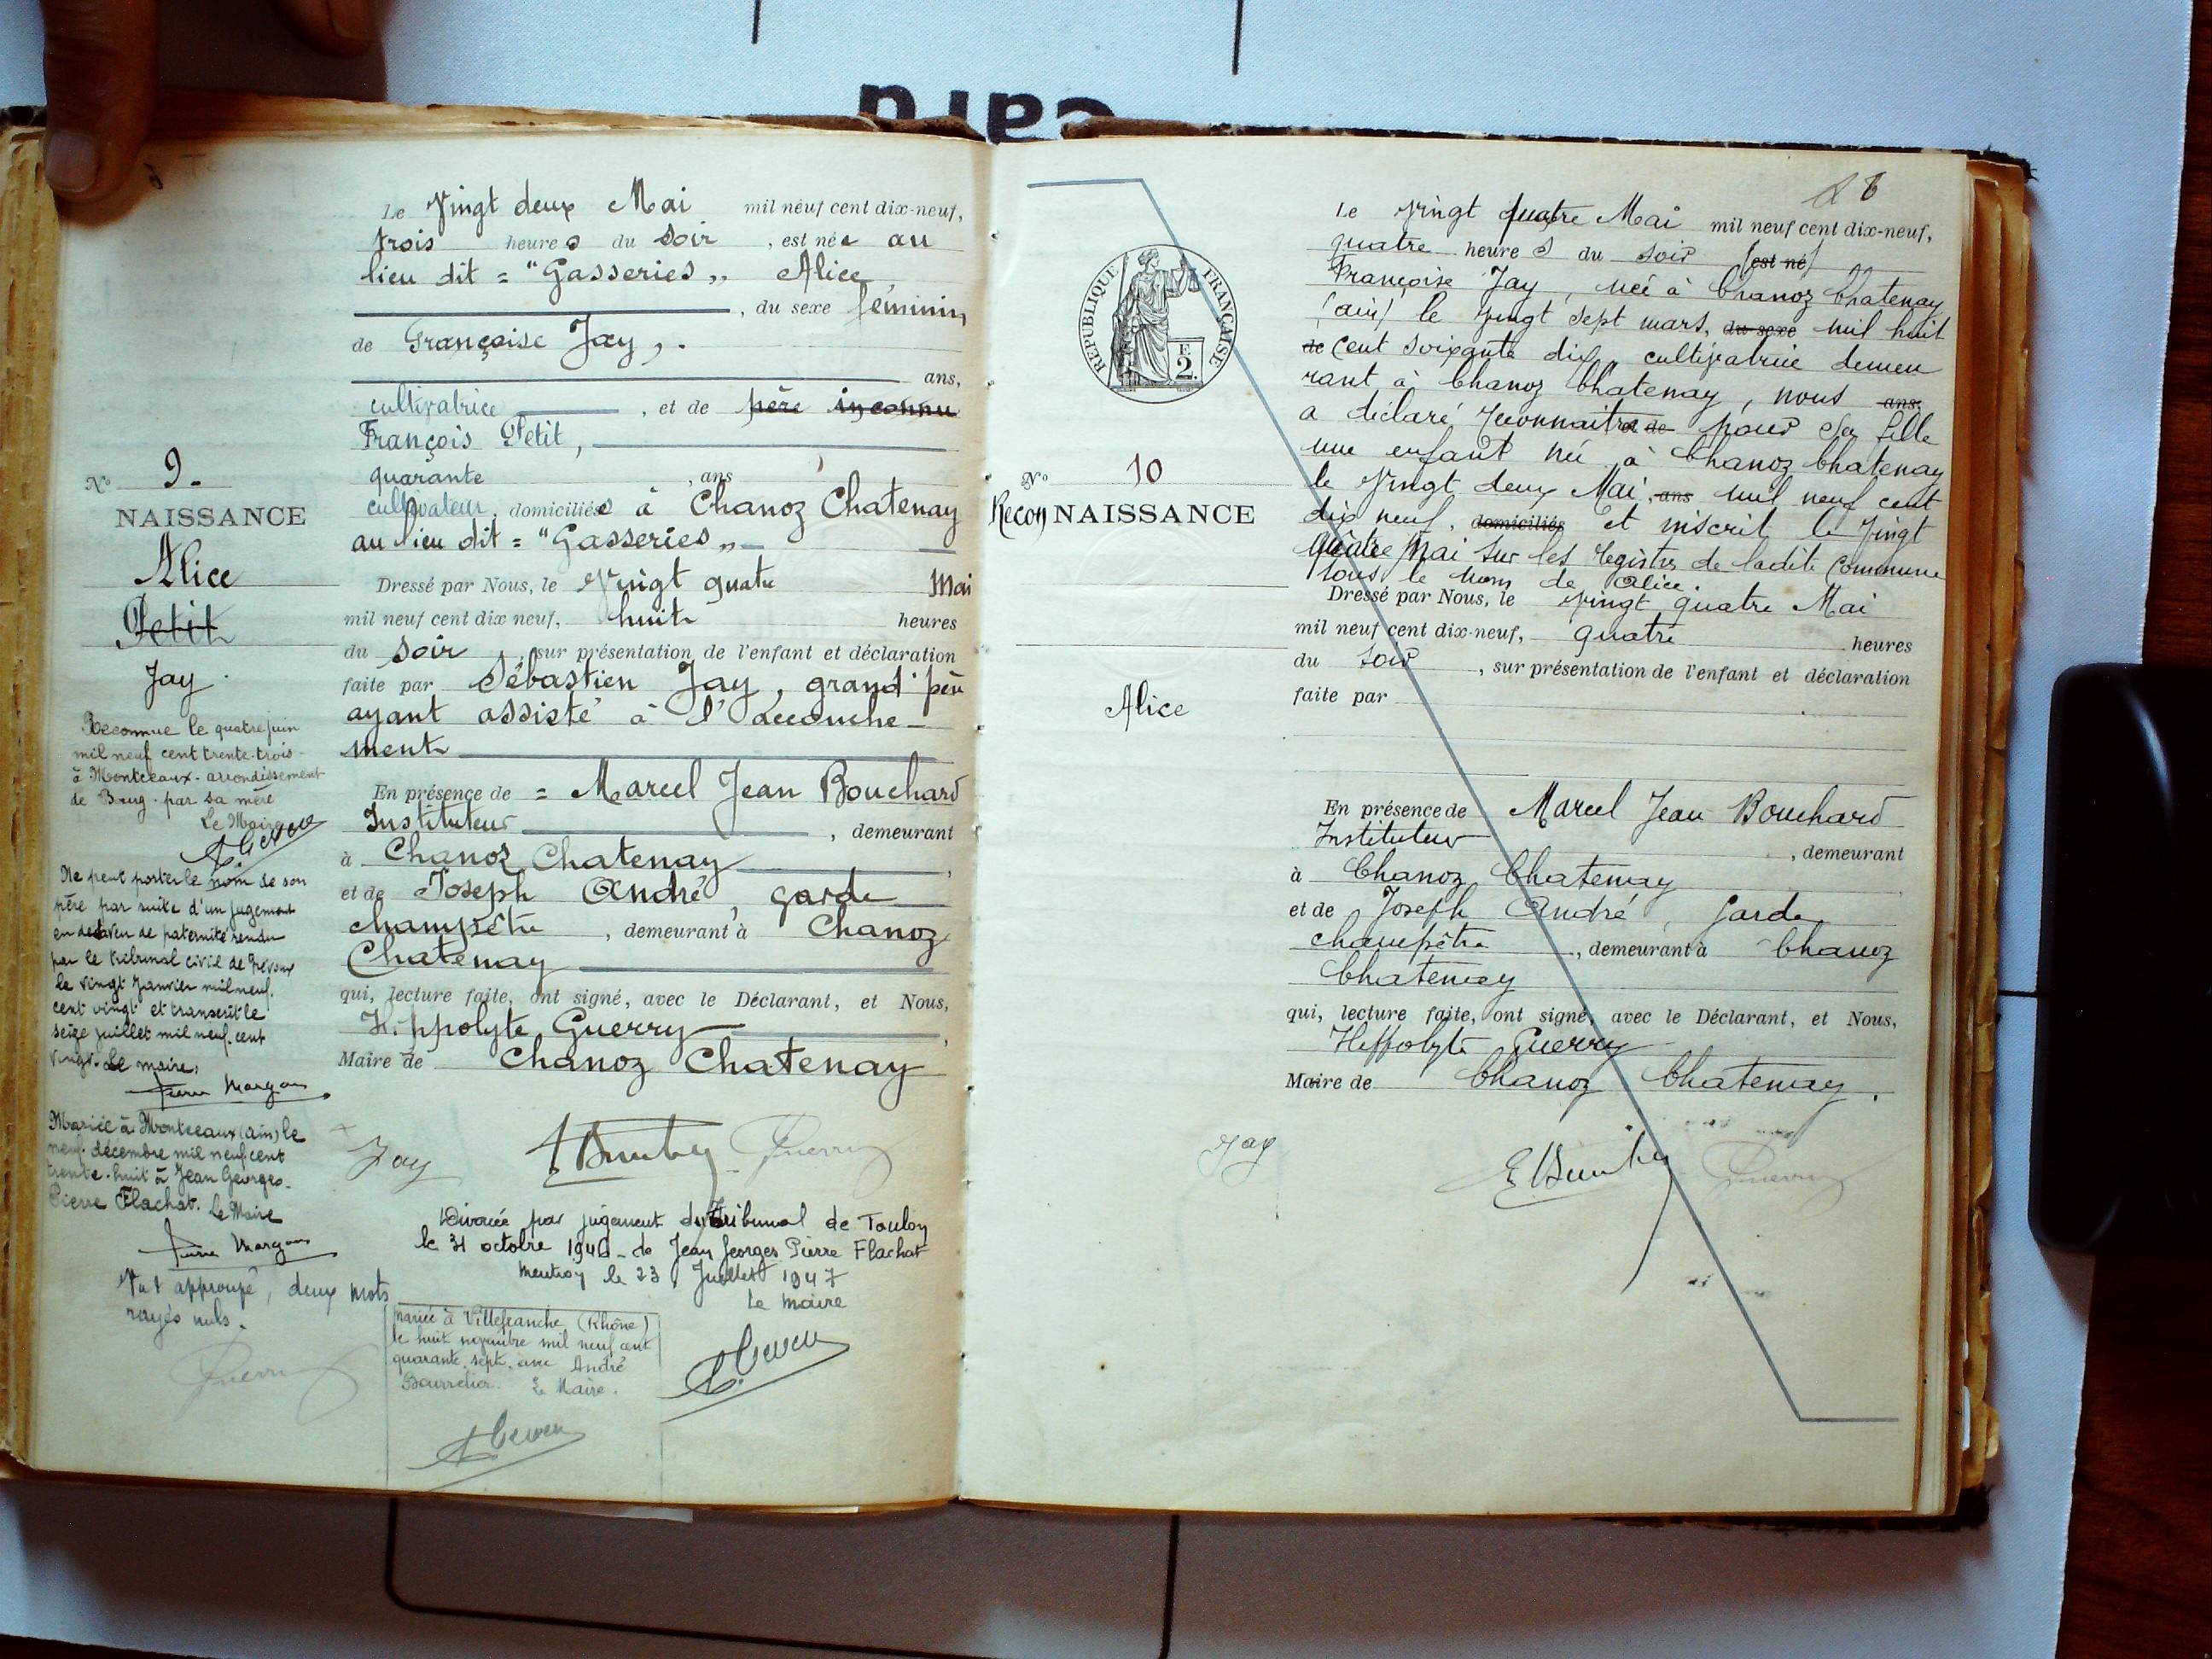 card
Le Vingt deux Mai mil neuf cent dix-neuf,
trois heures du soir, est née au
lieu dit = "Gasseries" Alice
, du sexe féminin
de Françoise Jay,
ans,
cultivatrice, et de père inconnu
François Petit,
quarante, ans
cultivateur, domiciliés à Chanoz Chatenay
au lieu dit = "Gasseries"
Dressé par Nous, le Vingt quatre Mai
mil neuf cent dix neuf, huit heures
du soir, sur présentation de l'enfant et déclaration
faite par Sébastien Jay, grand père
ayant assisté à l'accouche-
ment
En présence de = Marcel Jean Bouchard
Instituteur, demeurant
à Chanoz Chatenay,
et de Joseph André, garde
champêtre, demeurant à Chanoz
Chatenay
qui, lecture faite, ont signé, avec le Déclarant, et Nous,
Hippolyte Guerry,
Maire de Chanoz Chatenay
Jay Guerry
N° 9.
NAISSANCE
Alice
Petit
Jay.
Reconnue le quatre juin
mil neuf cent trente-trois
à Montceaux - arrondissement
de Bourg - par sa mère
Le Maire
Ne peut porter le nom de son
père par suite d'un jugement
en désaveu de paternité rendu
par le tribunal civil de Trévoux
le vingt Janvier mil neuf.
cent vingt et transcrit le
seize juillet mil neuf. cent
vingt. Le maire,
Mariée à Montceaux (ain) le
neuf décembre mil neuf cent
trente-huit à Jean Georges-
Pierre Flachat. Le Maire
Vu et approuvé, deux mots
rayés nuls.
Guerry
Divorcée par jugement du Tribunal de Toulon
le 31 octobre 1946 - de Jean Georges Pierre Flachat
le 23 Juillet 1947
Le maire
Mariée à Villefranche (Rhône)
le huit novembre mil neuf cent
quarante sept avec André
Bourrelier. Le Maire.
REPUBLIQUE FRANÇAISE
E
2.
N° 10
ReconNAISSANCE
Alice
Le Vingt quatre Mai mil neuf cent dix-neuf,
quatre heures du soir (est né)
Françoise Jay, née à Chanoz Chatenay
(ain) le vingt sept mars, du sexe mil huit
de cent soixante dix, cultivatrice demeu
rant à Chanoz Chatenay, nous ans,
a déclaré reconnaitre et de pour sa fille
une enfant née à Chanoz Chatenay
le Vingt deux Mai, ans mil neuf cent
dix neuf, domiciliés et inscrit le Vingt
quatre Mai sur les registres de ladite Commune
sous le nom de Alice.
Dressé par Nous, le Vingt quatre Mai
mil neuf cent dix-neuf, quatre heures
du soir, sur présentation de l'enfant et déclaration
faite par
En présence de Marcel Jean Bouchard
Instituteur, demeurant
à Chanoz Chatenay
et de Joseph André, garde
champêtre, demeurant à Chanoz
Chatenay
qui, lecture faite, ont signé, avec le Déclarant, et Nous,
Hippolyte Guerry
Maire de Chanoz Chatenay.
Jay Guerry